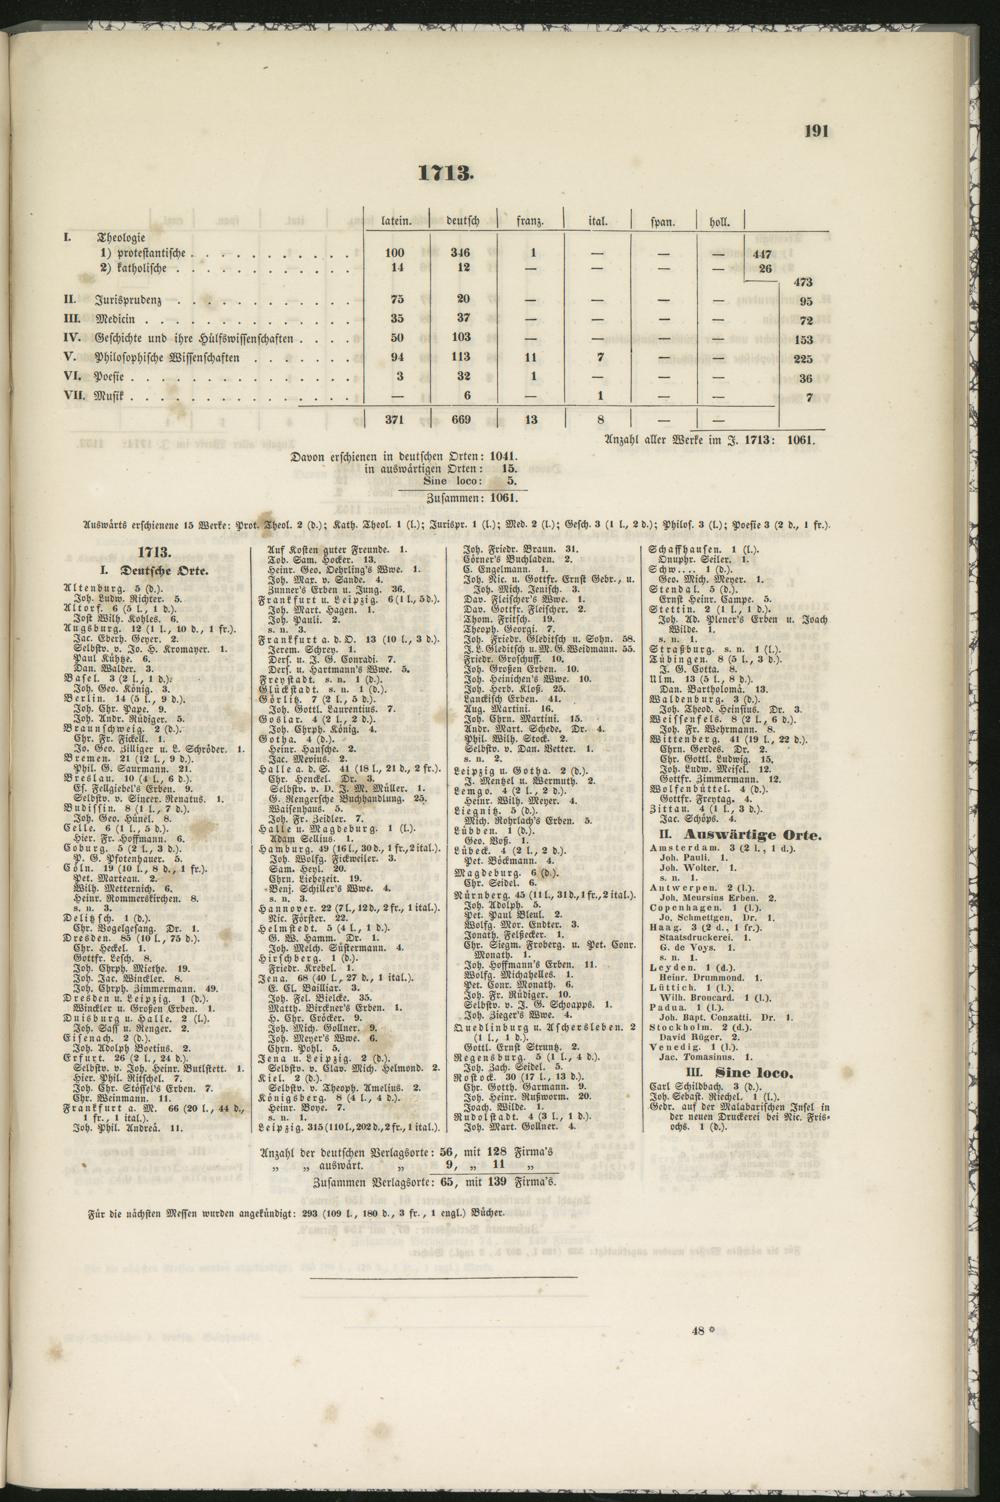 191
1713.
latein. deutsch franz. ital. span. holl.
I. Theologie
1) protestantische . . . . . . . . . . . 100 346 1 — — — 447
2) katholische . . . . . . . . . . . . 14 12 — — — — 26
473
II. Jurisprudenz . . . . . . . . . . . . 75 20 — — — — 95
III. Medicin . . . . . . . . . . . . . . 35 37 — — — — 72
IV. Geschichte und ihre Hülfswissenschaften . . . . 50 103 — — — — 153
V. Philosophische Wissenschaften . . . . . . . 94 113 11 7 — — 225
VI. Poesie . . . . . . . . . . . . . . . 3 32 1 — — — 36
VII. Musik . . . . . . . . . . . . . . . — 6 — 1 — — 7
371 669 13 8 — —
Anzahl aller Werke im J. 1713: 1061.
Davon erschienen in deutschen Orten: 1041.
in auswärtigen Orten: 15.
Sine loco: 5.
Zusammen: 1061.
Auswärts erschienene 15 Werke: Prot. Theol. 2 (d.); Kath. Theol. 1 (l.); Jurispr. 1 (l.); Med. 2 (l.); Gesch. 3 (1 l., 2 d.); Philos. 3 (l.); Poesie 3 (2 d., 1 fr.).
1713.
I. Deutsche Orte.
Altenburg. 5 (d.).
Joh. Ludw. Richter. 5.
Altorf. 6 (5 l., 1 d.).
Jost Wilh. Kohles. 6.
Augsburg. 12 (1 l., 10 d., 1 fr.).
Jac. Eberh. Geyer. 2.
Selbstv. v. Jo. H. Kromayer. 1.
Paul Kühtze. 6.
Dan. Walder. 3.
Basel. 3 (2 l., 1 d.).
Joh. Geo. König. 3.
Berlin. 14 (5 l., 9 d.).
Joh. Chr. Pape. 9.
Joh. Andr. Rüdiger. 5.
Braunschweig. 2 (d.).
Chr. Fr. Fickell. 1.
Jo. Geo. Zilliger u. L. Schröder. 1.
Bremen. 21 (12 l., 9 d.).
Phil. G. Saurmann. 21.
Breslau. 10 (4 l., 6 d.).
Es. Fellgiebel's Erben. 9.
Selbstv. v. Sincer. Renatus. 1.
Budissin. 8 (1 l., 7 d.).
Joh. Geo. Hünel. 8.
Celle. 6 (1 l., 5 d.).
Hier. Fr. Hoffmann. 6.
Coburg. 5 (2 l., 3 d.).
P. G. Pfotenhauer. 5.
Cöln. 19 (10 l., 8 d., 1 fr.).
Pet. Marteau. 2.
Wilh. Metternich. 6.
Heinr. Rommerskirchen. 8.
s. n. 3.
Delitzsch. 1 (d.).
Chr. Vogelgesang. Dr. 1.
Dresden. 85 (10 l., 75 d.).
Chr. Heckel. 1.
Gottfr. Lesch. 8.
Joh. Chrph. Miethe. 19.
Joh. Jac. Winckler. 8.
Joh. Chrph. Zimmermann. 49.
Dresden u. Leipzig. 1 (d.).
Winckler u. Großen Erben. 1.
Duisburg u. Halle. 2 (l.).
Joh. Sass u. Renger. 2.
Eisenach. 2 (d.).
Joh. Adolph Boetius. 2.
Erfurt. 26 (2 l., 24 d.).
Selbstv. v. Joh. Heinr. Butlstett. 1.
Hier. Phil. Ritschel. 7.
Joh. Chr. Stössel's Erben. 7.
Chr. Weinmann. 11.
Frankfurt a. M. 66 (20 l., 44 d.,
1 fr., 1 ital.).
Joh. Phil. Andreä. 11.
Auf Kosten guter Freunde. 1.
Tob. Sam. Hocker. 13.
Heinr. Geo. Oehrling's Wwe. 1.
Joh. Mar. v. Sande. 4.
Zunner's Erben u. Jung. 36.
Frankfurt u. Leipzig. 6 (1 l., 5 d.).
Joh. Mart. Hagen. 1.
Joh. Pauli. 2.
s. n. 3.
Frankfurt a. d. O. 13 (10 l., 3 d.).
Jerem. Schrey. 1.
Ders. u. J. G. Conradi. 7.
Ders. u. Hartmann's Wwe. 5.
Freystadt. s. n. 1 (d.).
Glückstadt. s. n. 1 (d.).
Görlitz. 7 (2 l., 5 d.).
Joh. Gottl. Laurentius. 7.
Goslar. 4 (2 l., 2 d.).
Joh. Chrph. König. 4.
Gotha. 4 (d.).
Heinr. Hansche. 2.
Jac. Mevius. 2.
Halle a. d. S. 41 (18 l., 21 d., 2 fr.).
Chr. Henckel. Dr. 3.
Selbstv. v. D. J. M. Müller. 1.
G. Rengersche Buchhandlung. 25.
Waisenhaus. 5.
Joh. Fr. Zeidler. 7.
Halle u. Magdeburg. 1 (l.).
Adam Sellius. 1.
Hamburg. 49 (16 l., 30 d., 1 fr., 2 ital.).
Joh. Wolfg. Fickweiler. 3.
Sam. Heyl. 20.
Chrn. Liebezeit. 19.
Benj. Schiller's Wwe. 4.
s. n. 3.
Hannover. 22 (7 l., 12 d., 2 fr., 1 ital.).
Nic. Förster. 22.
Helmstedt. 5 (4 l., 1 d.).
G. W. Hamm. Dr. 1.
Joh. Melch. Süstermann. 4.
Hirschberg. 1 (d.).
Friedr. Krebel. 1.
Jena. 68 (40 l., 27 d., 1 ital.).
E. Cl. Bailliar. 3.
Joh. Fel. Bielcke. 35.
Matth. Birckner's Erben. 1.
H. Chr. Cröcker. 9.
Joh. Mich. Gollner. 9.
Joh. Meyer's Wwe. 6.
Chrn. Pohl. 5.
Jena u. Leipzig. 2 (d.).
Selbstv. v. Glav. Mich. Helmond. 2.
Kiel. 2 (d.).
Selbstv. v. Theoph. Amelius. 2.
Königsberg. 8 (4 l., 4 d.).
Heinr. Boye. 7.
s. n. 1.
Leipzig. 315 (110 l., 202 d., 2 fr., 1 ital.).
Joh. Friedr. Braun. 31.
Cörner's Buchladen. 2.
C. Engelmann. 1.
Joh. Nic. u. Gottfr. Ernst Gebr., u.
Joh. Mich. Jenisch. 3.
Dav. Fleischer's Wwe. 1.
Dav. Gottfr. Fleischer. 2.
Thom. Fritsch. 19.
Theoph. Georgi. 7.
Joh. Friedr. Gleditsch u. Sohn. 58.
J. L. Gleditsch u. M. G. Weidmann. 55.
Friedr. Groschuff. 10.
Joh. Großen Erben. 10.
Joh. Heinichen's Wwe. 10.
Joh. Herb. Kloß. 25.
Lanckisch Erben. 41.
Aug. Martini. 16.
Joh. Chrn. Martini. 15.
Andr. Mart. Schede. Dr. 4.
Phil. Wilh. Stock. 2.
Selbstv. v. Dan. Vetter. 1.
s. n. 2.
Leipzig u. Gotha. 2 (d.).
J. Mentzel u. Wermuth. 2.
Lemgo. 4 (2 l., 2 d.).
Heinr. Wilh. Meyer. 4.
Liegnitz. 5 (d.).
Mich. Rohrlach's Erben. 5.
Lübben. 1 (d.).
Geo. Voß. 1.
Lübeck. 4 (2 l., 2 d.).
Pet. Böckmann. 4.
Magdeburg. 6 (d.).
Chr. Seidel. 6.
Nürnberg. 45 (11 l., 31 d., 1 fr., 2 ital.).
Joh. Adolph. 5.
Pet. Paul Bleul. 2.
Wolfg. Mor. Endter. 3.
Jonath. Felßecker. 1.
Chr. Siegm. Froberg. u. Pet. Conr.
Monath. 1.
Joh. Hoffmann's Erben. 11.
Wolfg. Michahelles. 1.
Pet. Conr. Monath. 6.
Joh. Fr. Rüdiger. 10.
Selbstv. v. J. G. Schoapps. 1.
Joh. Zieger's Wwe. 4.
Quedlinburg u. Aschersleben. 2
(1 l., 1 d.).
Gottl. Ernst Struntz. 2.
Regensburg. 5 (1 l., 4 d.).
Joh. Zach. Seidel. 5.
Rostock. 30 (17 l., 13 d.).
Chr. Gotth. Garmann. 9.
Joh. Heinr. Rußworm. 20.
Joach. Wilde. 1.
Rudolstadt. 4 (3 l., 1 d.).
Joh. Mart. Gollner. 4.
Schaffhausen. 1 (l.).
Onuphr. Seiler. 1.
Schw.... 1 (d.).
Geo. Mich. Meyer. 1.
Stendal. 5 (d.).
Ernst Heinr. Campe. 5.
Stettin. 2 (1 l., 1 d.).
Joh. Ad. Plener's Erben u. Joach
Wilde. 1.
s. n. 1.
Straßburg. s. n. 1 (l.).
Tübingen. 8 (5 l., 3 d.).
J. G. Cotta. 8.
Ulm. 13 (5 l., 8 d.).
Dan. Bartholomä. 13.
Waldenburg. 3 (d.).
Joh. Theod. Heinsius. Dr. 3.
Weissenfels. 8 (2 l., 6 d.).
Joh. Fr. Wehrmann. 8.
Wittenberg. 41 (19 l., 22 d.).
Chrn. Gerdes. Dr. 2.
Chr. Gottl. Ludwig. 15.
Joh. Ludw. Meisel. 12.
Gottfr. Zimmermann. 12.
Wolfenbüttel. 4 (d.).
Gottfr. Freytag. 4.
Zittau. 4 (1 l., 3 d.).
Jac. Schöps. 4.
II. Auswärtige Orte.
Amsterdam. 3 (2 l., 1 d.).
Joh. Pauli. 1.
Joh. Wolter. 1.
s. n. 1.
Antwerpen. 2 (l.).
Joh. Meursius Erben. 2.
Copenhagen. 1 (l.).
Jo. Schmettgen. Dr. 1.
Haag. 3 (2 d., 1 fr.).
Staatsdruckerei. 1.
G. de Voys. 1.
s. n. 1.
Leyden. 1 (d.).
Heinr. Drummond. 1.
Lüttich. 1 (l.).
Wilh. Broncard. 1 (l.).
Padua. 1 (l.).
Joh. Bapt. Conzatti. Dr. 1.
Stockholm. 2 (d.).
David Rüger. 2.
Venedig. 1 (l.).
Jac. Tomasinus. 1.
III. Sine loco.
Carl Schildbach. 3 (d.).
Joh. Sebast. Riechel. 1 (l.).
Gedr. auf der Malabarischen Insel in
der neuen Druckerei bei Nic. Fris-
ochs. 1 (d.).
Anzahl der deutschen Verlagsorte: 56, mit 128 Firma's
„ „ auswärt. „ 9, „ 11 „
Zusammen Verlagsorte: 65, mit 139 Firma's.
Für die nächsten Messen wurden angekündigt: 293 (109 l., 180 d., 3 fr., 1 engl.) Bücher.
48 *